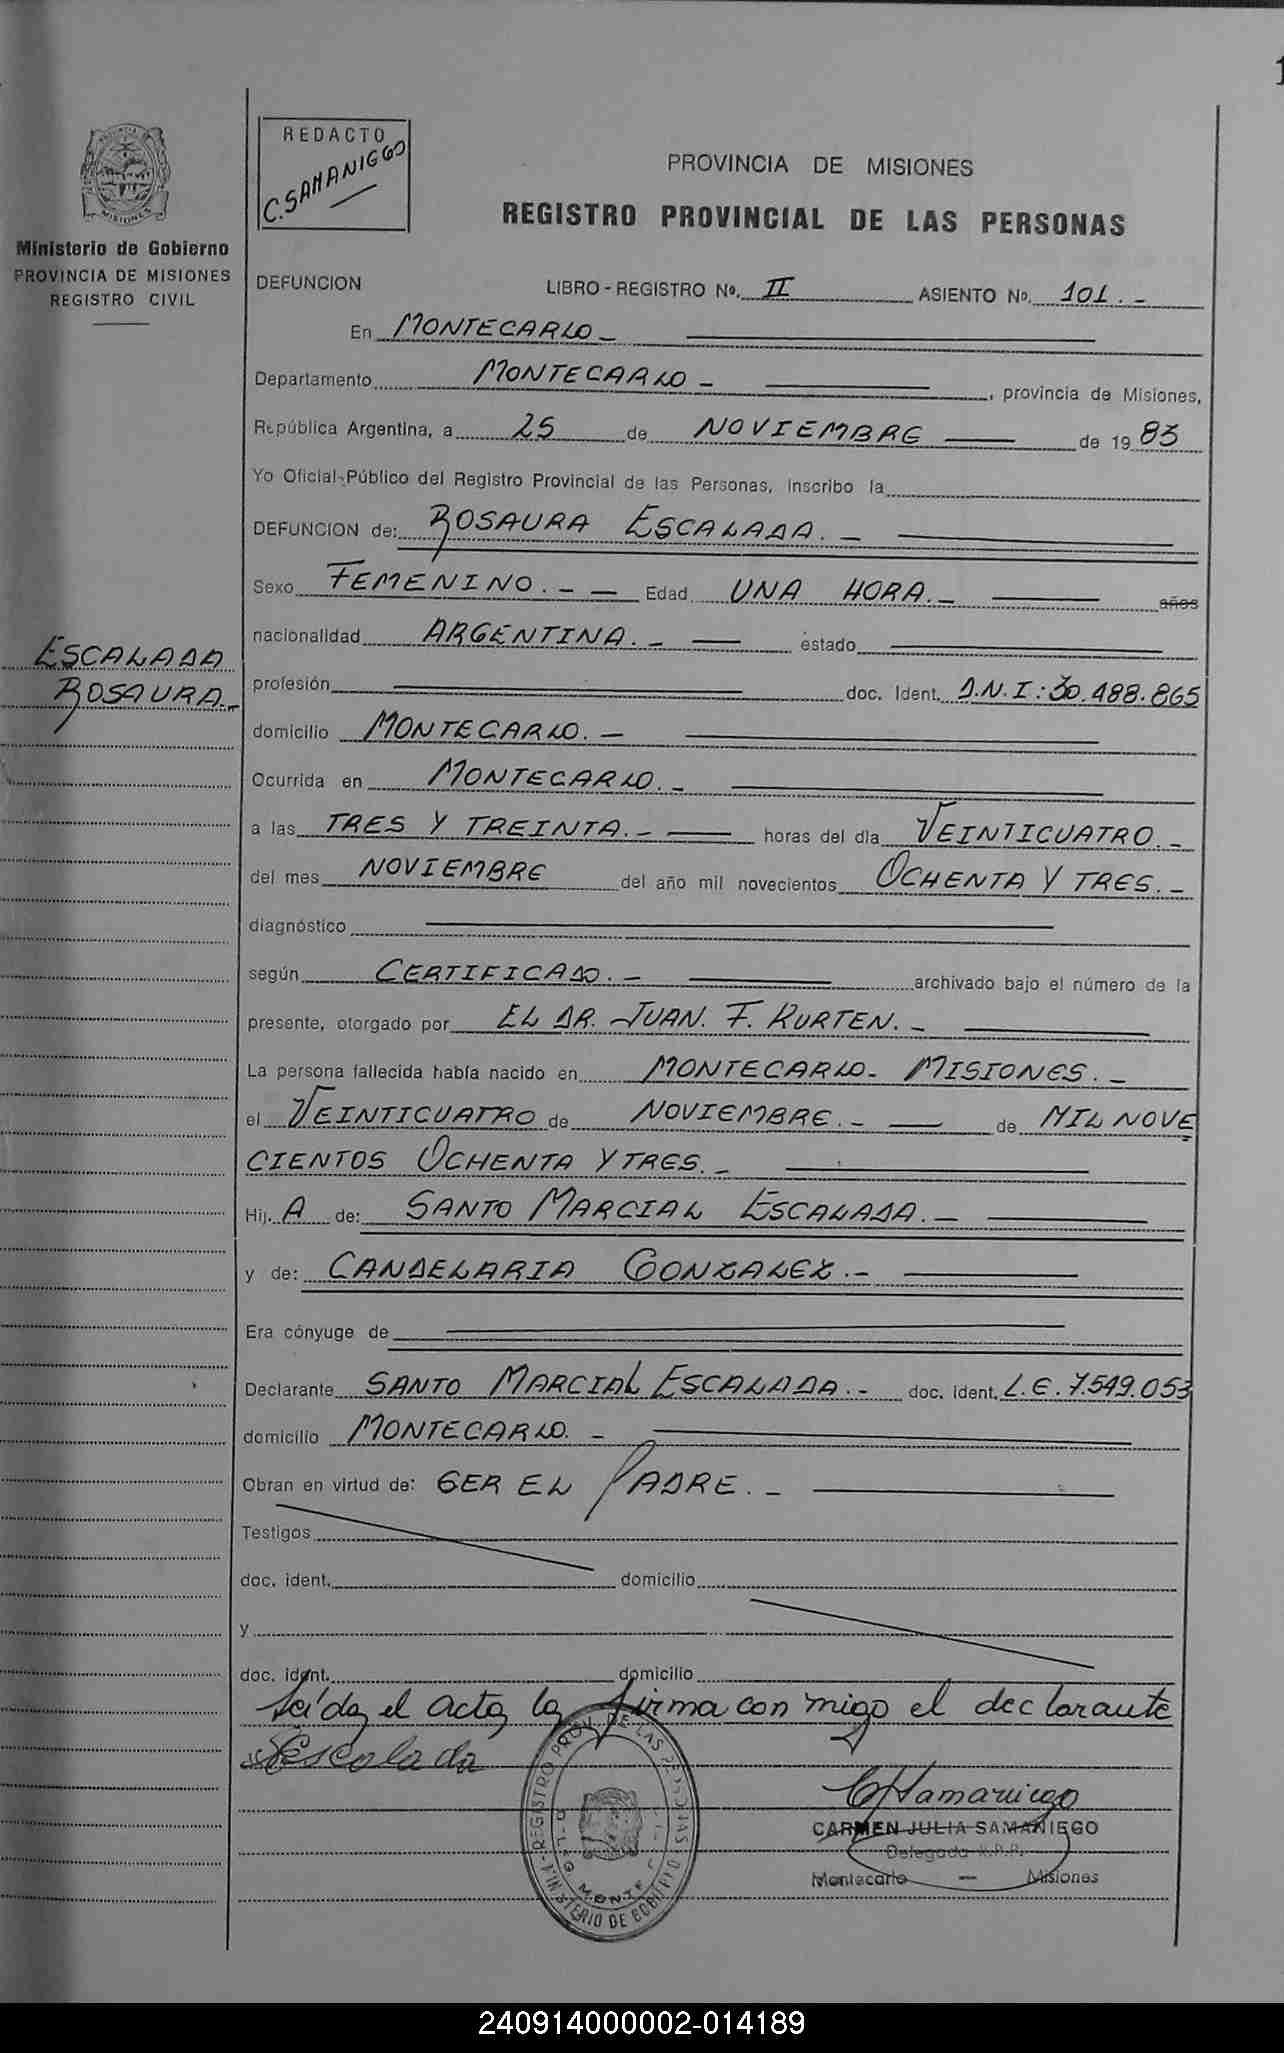 1
REDACTO
C. SAMANIEGO
PROVINCIA DE MISIONES
REGISTRO PROVINCIAL DE LAS PERSONAS
MISIONES
Ministerio de Gobierno
PROVINCIA DE MISIONES
REGISTRO CIVIL
DEFUNCION LIBRO-REGISTRO Nº. II ASIENTO Nº. 101.-
En MONTECARLO-
Departamento MONTECARLO- , provincia de Misiones,
República Argentina, a 25 de NOVIEMBRE de 1983
Yo Oficial Público del Registro Provincial de las Personas, inscribo la
DEFUNCION de: ROSAURA ESCALADA.-
Sexo FEMENINO.- - Edad UNA HORA.- años
ESCALADA
ROSAURA.-
nacionalidad ARGENTINA.- estado
profesión doc. Ident. D.N.I: 30.488.865
domicilio MONTECARLO.-
Ocurrida en MONTECARLO.-
a las TRES Y TREINTA.- horas del día VEINTICUATRO.-
del mes NOVIEMBRE del año mil novecientos OCHENTA Y TRES.-
diagnóstico
según CERTIFICADO.- archivado bajo el número de la
presente, otorgado por EL DR. JUAN. F. KURTEN.-
La persona fallecida había nacido en MONTECARLO- MISIONES.-
el VEINTICUATRO de NOVIEMBRE.- de MIL NOVE
CIENTOS OCHENTA Y TRES.-
Hij. A de: SANTO MARCIAL ESCALADA.-
y de: CANDELARIA GONZALEZ.-
Era cónyuge de
Declarante SANTO MARCIAL ESCALADA.- doc. ident. L.E. 7.549.053
domicilio MONTECARLO.-
Obran en virtud de: SER EL PADRE.-
Testigos
doc. ident. domicilio
y
doc. ident. domicilio
Leída el acta, la firma conmigo el declarante
Escalada
REGISTRO PROV. DE LAS PERSONAS
MINISTERIO DE GOBIERNO
CJSamaniego
CARMEN JULIA SAMANIEGO
Delegada R.P.P.
Montecarlo - Misiones
240914000002-014189